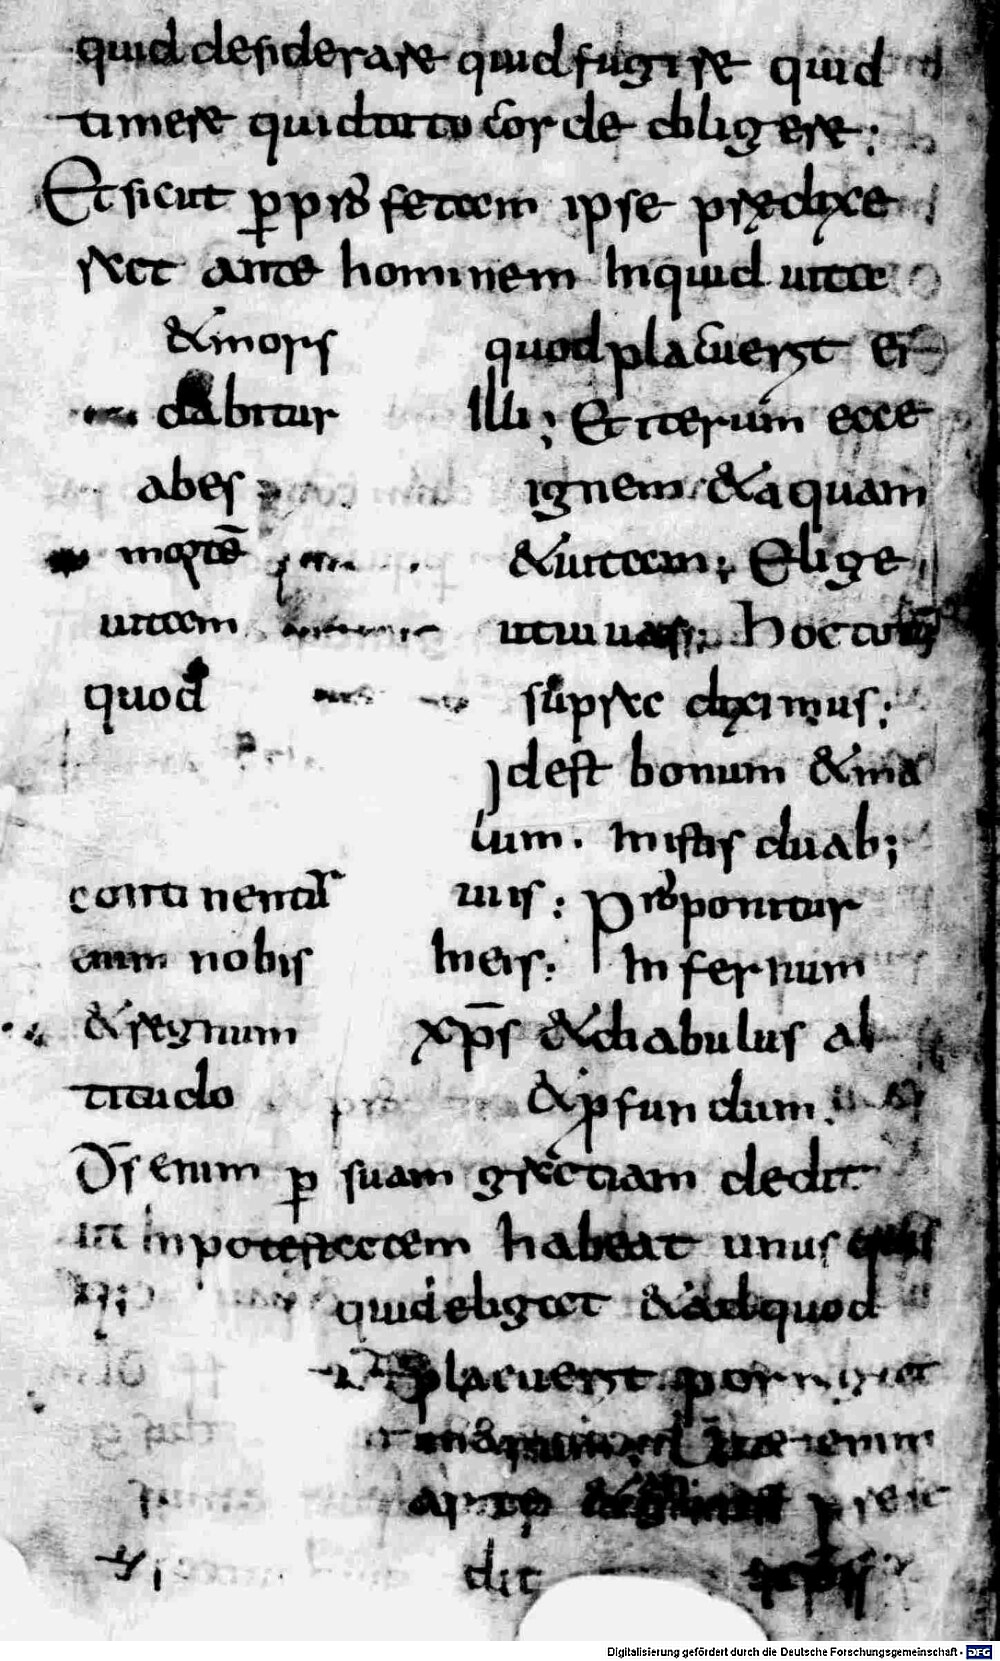 quid desiderare quid fugire quid
timere quid toto corde diligere:
Et sicut p̱ profetam ipse prædixe
rat ante hominem Inquid uita
& mors quod placuerit
dabitur Illi; Et iterum ecce
abes ignem & aquam
mortē & uitam; Elige
uitam ut uiuas; hoc
quod supra diximus;
Idest bonum & ma
lum. In istis duab;
continentur uiis: Proponitur
enim nobis In eis: Infernum
& regnum xp̄s & diabulus al
titudo & profundum.
D̄s enim p̱ suam gratiam dedit
ut In potestatem habeat unus
quid eligat & ad quod
placuerit porrigat
enim
dit
Digitalisierung gefördert durch die Deutsche Forschungsgemeinschaft - DFG